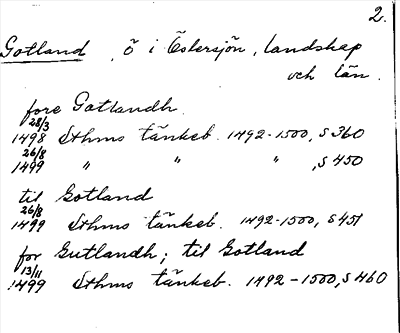 2.
Gotland, ö i Östersjön, landskap
och län.
fore Gotlandh.
28/3
1498 Sthms tänkeb. 1492-1500, s 360
26/8
1499 " " " , s 450
til Gotland
26/8
1499 Sthms tänkeb. 1492-1500, s 451
for Gutlandh; til Gotland
13/11
1499 Sthms tänkeb. 1492-1500, s 460